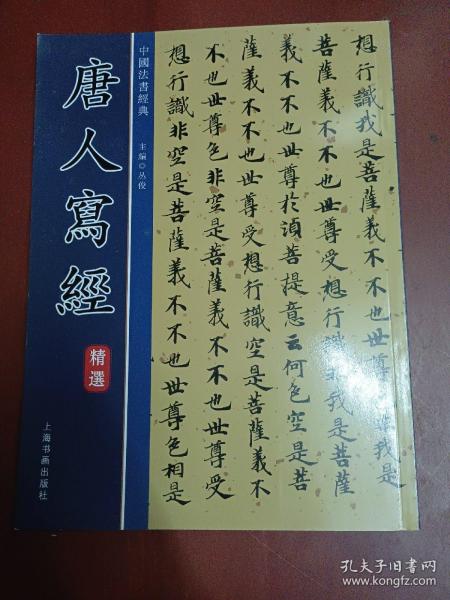 唐人寫經
精選
上海书画出版社
中國法書經典
主編◎丛俊
想行識我是菩薩義不不也世尊我是
菩薩義不不也世尊受想行識非我是菩薩
義不不也世尊於湏菩提意云何色空是菩
薩義不不也世尊受想行識空是菩薩義不
不也世尊色非空是菩薩義不不也世尊受
想行識非空是菩薩義不不也世尊色相是
孔夫子旧书网
www.kongfz.com